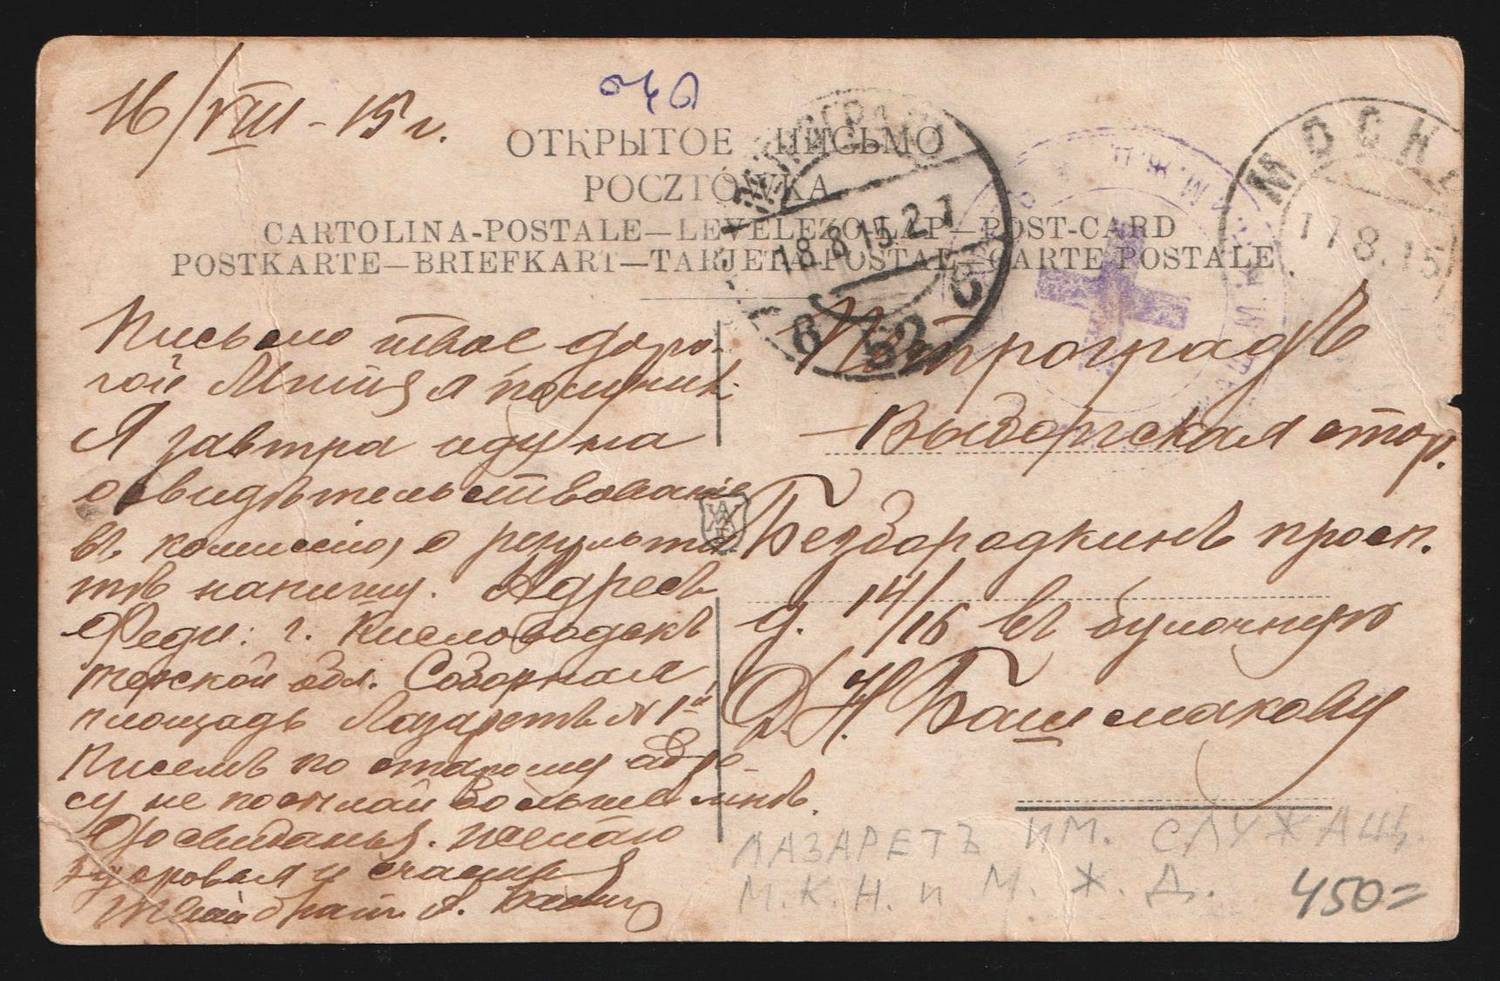 16/VIII - 15 г.
ОТКРЫТОЕ ПИСЬМО
POCZTÓWKA
CARTOLINA-POSTALE—LEVELEZO-LAP—POST-CARD
POSTKARTE—BRIEFKART—TARJETA-POSTAL—CARTE POSTALE
ПЕТРОГРАДЪ
18.8.15.2-7
6 52
МОСКВ
17 8.15
Письмо твое доро-
гой Митя я получил.
Я завтра иду на
освидѣтельствование
въ комиссию, о результа
тѣ напишу. Адресъ
Феди: г. Кисловодскъ
Терской обл. Соборная
площадь Лазаретъ №1й
Писемъ по старому адре-
су не посылай больше мнѣ.
Досвиданья. желаю
здоровья и счастья
Твой братъ А.
Петроградъ
Выборгская стор.
Безбородкинъ просп.
д. 14/16 въ булочную
Д. Н. Башмакову
ЛАЗАРЕТЪ ИМ. СЛУЖАЩ.
М.К.Н. и М.Ж.Д.
450=